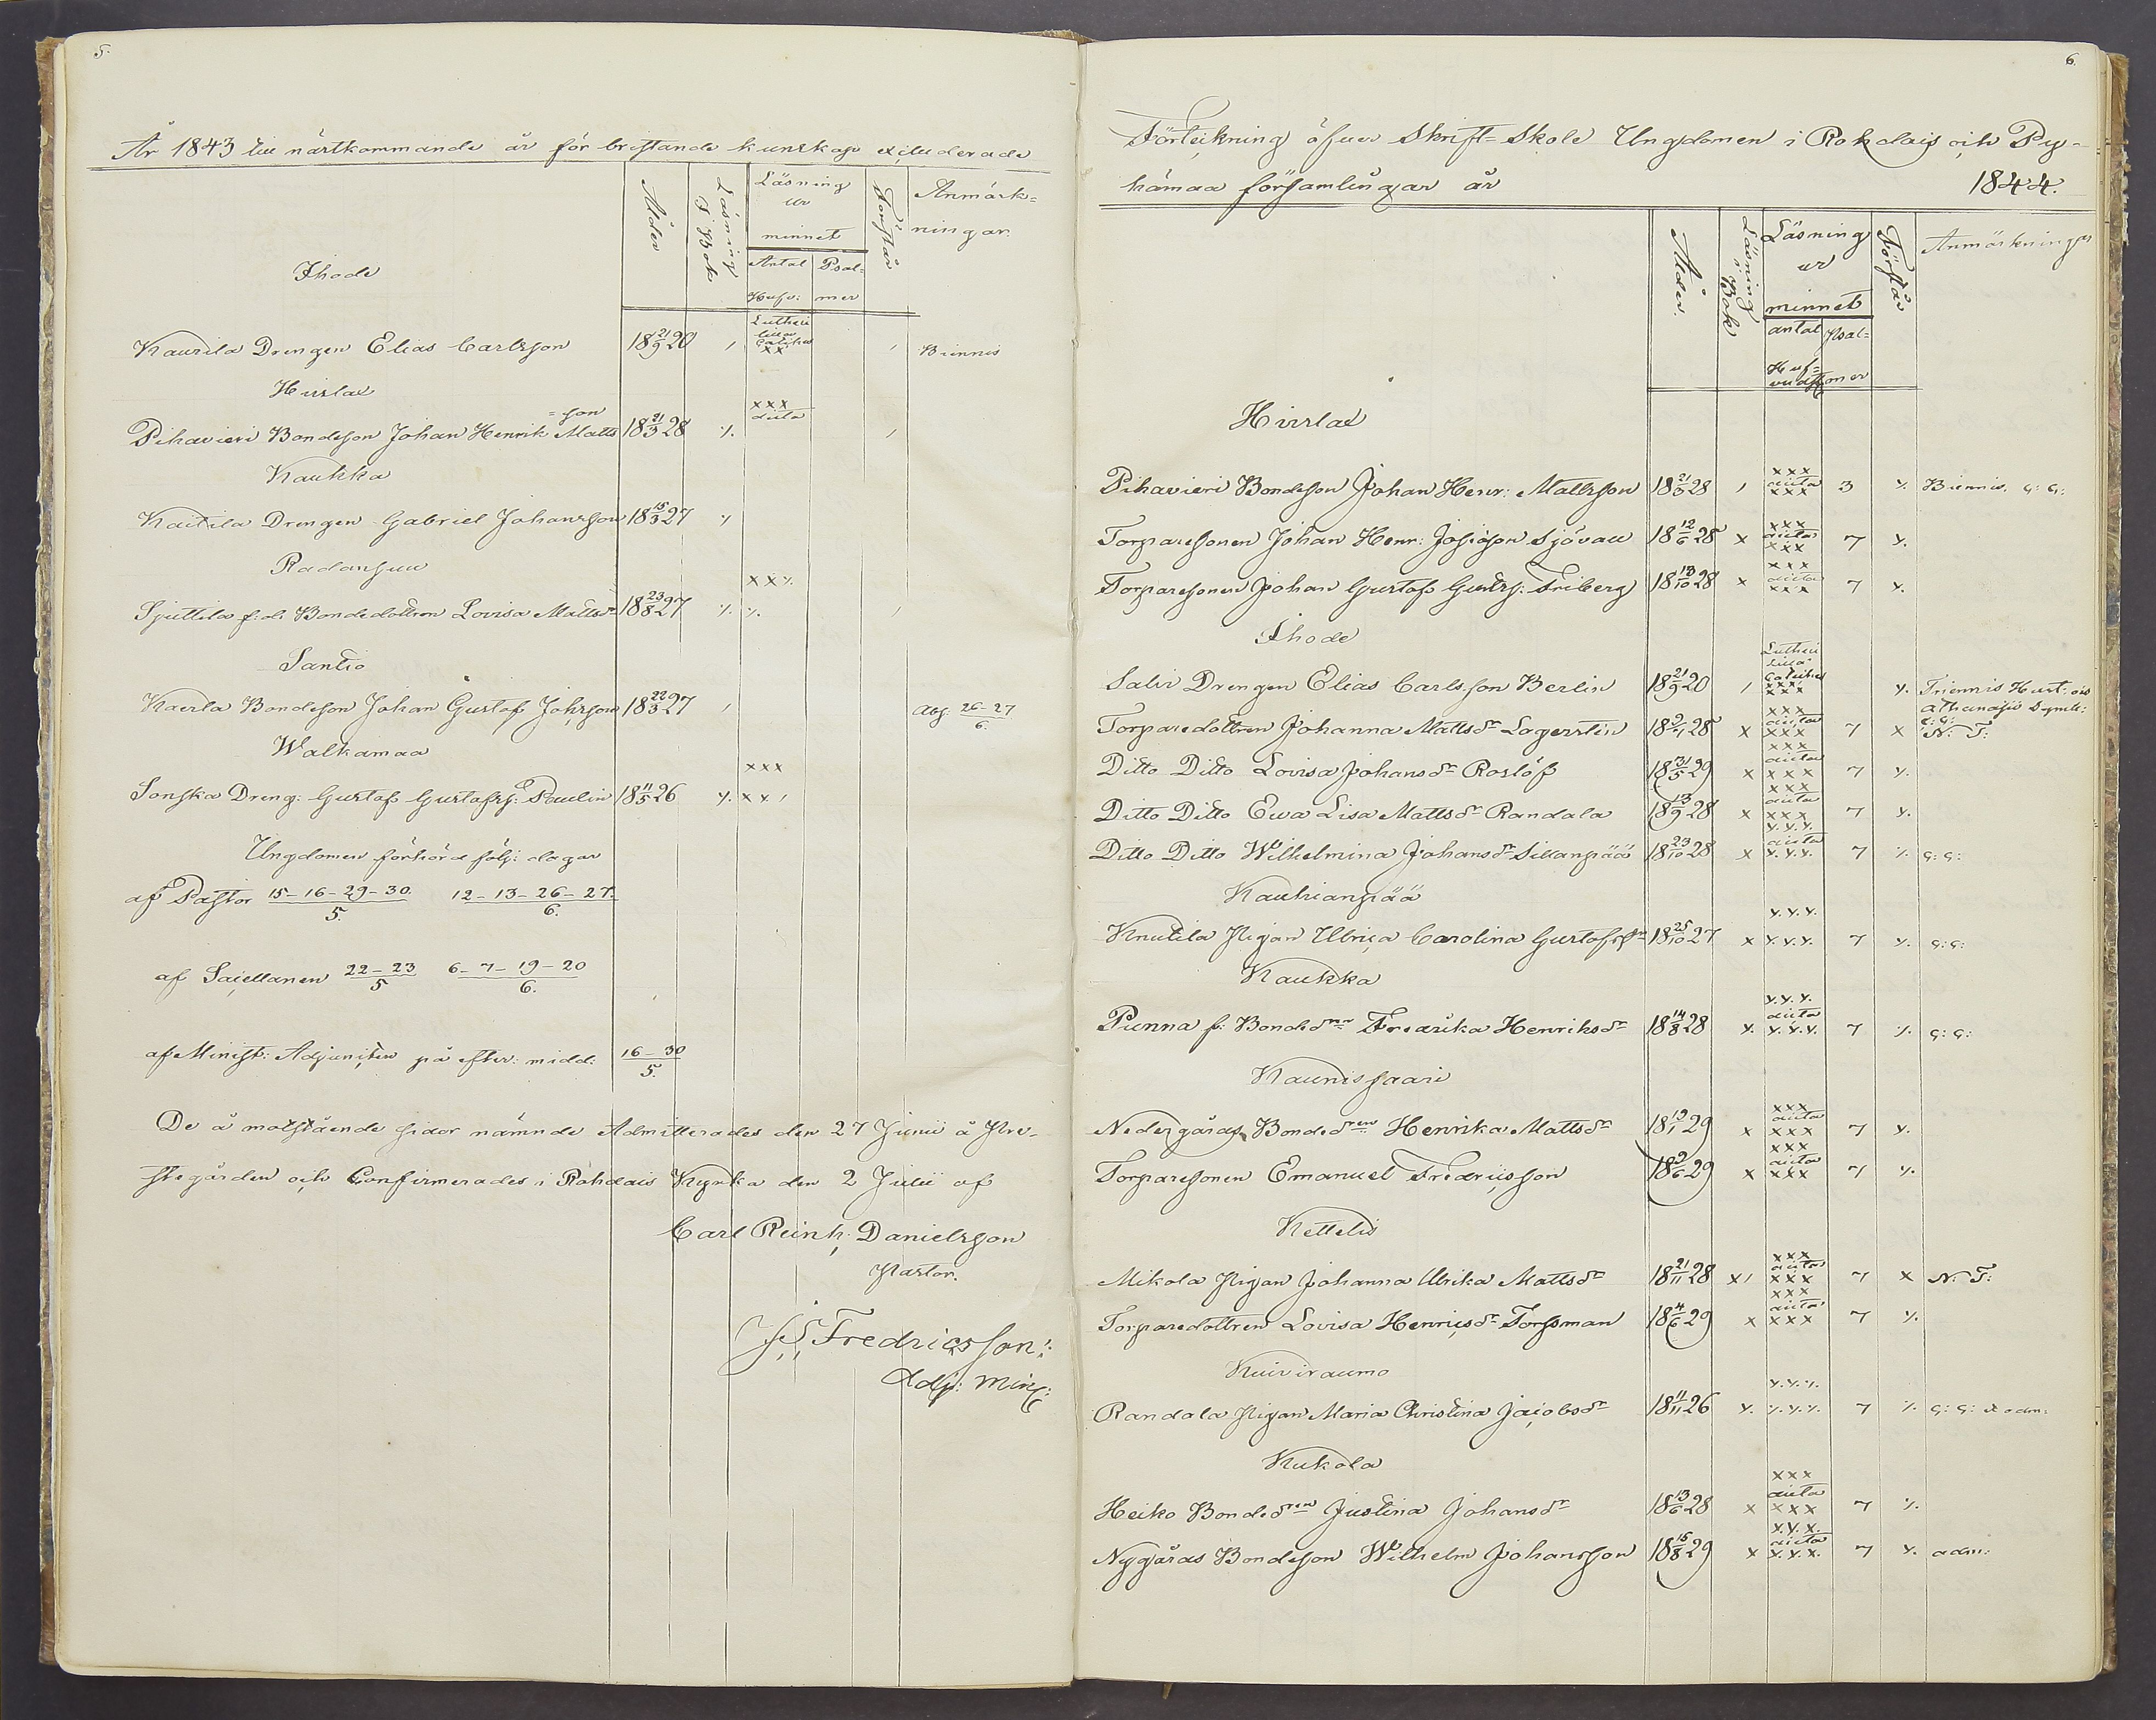 5.
År 1843 till nästkommande år för bristande kunskap excluderade
Ålder
Läsning i Bok
Läsning ur minnet
Antal Hufv:
Psalmer
Förstår
Anmärkningar.
Ihode
Kaurila Drengen Elias Carlsson 18 21/9 20 / Lutheri lilla Cateches xx / Biennis
Hirslax
Pihavieri Bondeson Johan Henrik Mattsson 18 21/3 28 xxx aucta
Kaukka
Kaitila Drengen Gabriel Johansson 18 15/3 27
Radansuu
Sjuttila f:d: Bondedottren Lovisa Mattsdr 18 23/8 27
Santio
Kaerla Bondeson Johan Gustaf Johsson 18 22/3 27 / Abs. 26-27/6.
Walkamaa
Sonska Dreng: Gustaf Gustafss: Paulin 18 11/5 26 xxx
Ungdomen förhörd följ: dagar
af Pastor 15-16-29-30/5. 12-13-26-27./6.
af Sacellanen 22-23/5 6-7-19-20/6.
af Minist: Adjuncten på efter: midd: 16-30/5.
De å motstående sidor nämnde Admitterades den 27 Junii å Pre-
stegården och Confirmerades i Rohdais Kyrka den 2 Julii af
Carl Reinh. Danielsson
Pastor.
Fredricsson:
Adj: Min:
6.
Förteckning öfver Skrift-Skole Ungdomen i Rohdais och Py-
hämaa församlingar år 1844.
Ålder.
Läsning i Bok
Läsning ur minnet
antal Hufvudst
Psalmer
Förstår
Anmärkningar
Hirslax
Pihavieri Bondeson Johan Henr: Mattsson 18 21/3 28 / xxx aucta xxx 3 Biennis. c: c:
Torparesonen Johan Henr: Josefsson Sjövall 18 12/6 28 x xxx aucta xxx 7
Torparesonen Johan Gustaf Gustfs: Friberg 18 13/10 28 x xxx aucta xxx 7
Ihode
Salvi Drengen Elias Carlsson Berlin 18 21/9 20 / Lutheri lilla Cateches xxx xxx Triennis Hust. och athanasii Symb: c: c:
Torparedottren Johanna Mattsdr Lagerstén 18 9/1 28 x xxx aucta xxx 7 x N: T:
Ditto Ditto Lovisa Johansdr Roslöf 18 31/5 29 x xxx aucta xxx 7
Ditto Ditto Ewa Lisa Mattsdr Randala 18 13/9 28 x xxx aucta xxx 7
Ditto Ditto Wilhelmina Johansdr Sillanpää 18 23/10 28 x aucta 7 c: c:
Kauhianpää
Knutila Pigan Ulrica Carolina Gustafsdr 18 25/10 27 x 7 c: c:
Kaukka
Punna f: Bondedrn Fredrika Henriksdr 18 14/8 28 aucta 7 c: c:
Kaunissaari
Nedergårds Bondedren Henrika Mattsdr 18 19/1 29 x xxx aucta xxx 7
Torparesonen Emanuel Fredricsson 18 9/6 29 x xxx aucta xxx 7
Kettelis
Mikola Pigan Johanna Ulrika Mattsdr 18 21/11 28 x/ xxx aucta xxx 7 x N: T:
Torparedottren Lovisa Henricsdr Forssman 18 4/6 29 x xxx aucta xxx 7
Kuiviraumo
Randala Pigan Maria Christina Jacobsdr 18 11/11 26 7 c: c: & adm:
Kukola
Heiko Bondedren Justina Johansdr 18 13/6 28 x xxx aucta xxx 7
Nygårds Bondeson Wilhelm Johansson 18 15/8 29 x aucta 7 adm: